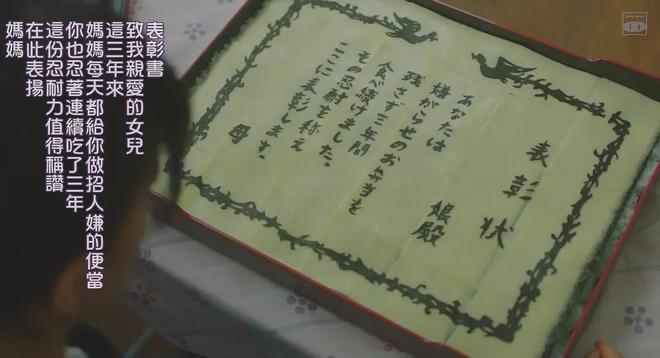 表彰書
致我親愛的女兒
這三年來
媽媽每天都給你做招人嫌的便當
你也忍著連續吃了三年
這份忍耐力值得稱讚
在此表揚
媽媽
表彰状
娘殿
あなたは
嫌がらせのお弁当を
残さず三年間
食べ続けました。
その忍耐を称え
ここに表彰します。
母